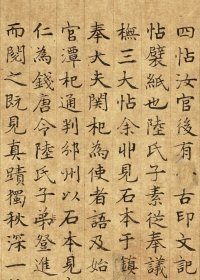 四帖汝官後有 古印文記
帖襞紙也陸氏子素從奉議
橅三大帖余卯見石本于鎮
奉大夫関杞為使者語及始
官潭杞通判邠州以石本見
仁為錢唐令陸氏子弟登進
而閱之既見真蹟獨秋深一